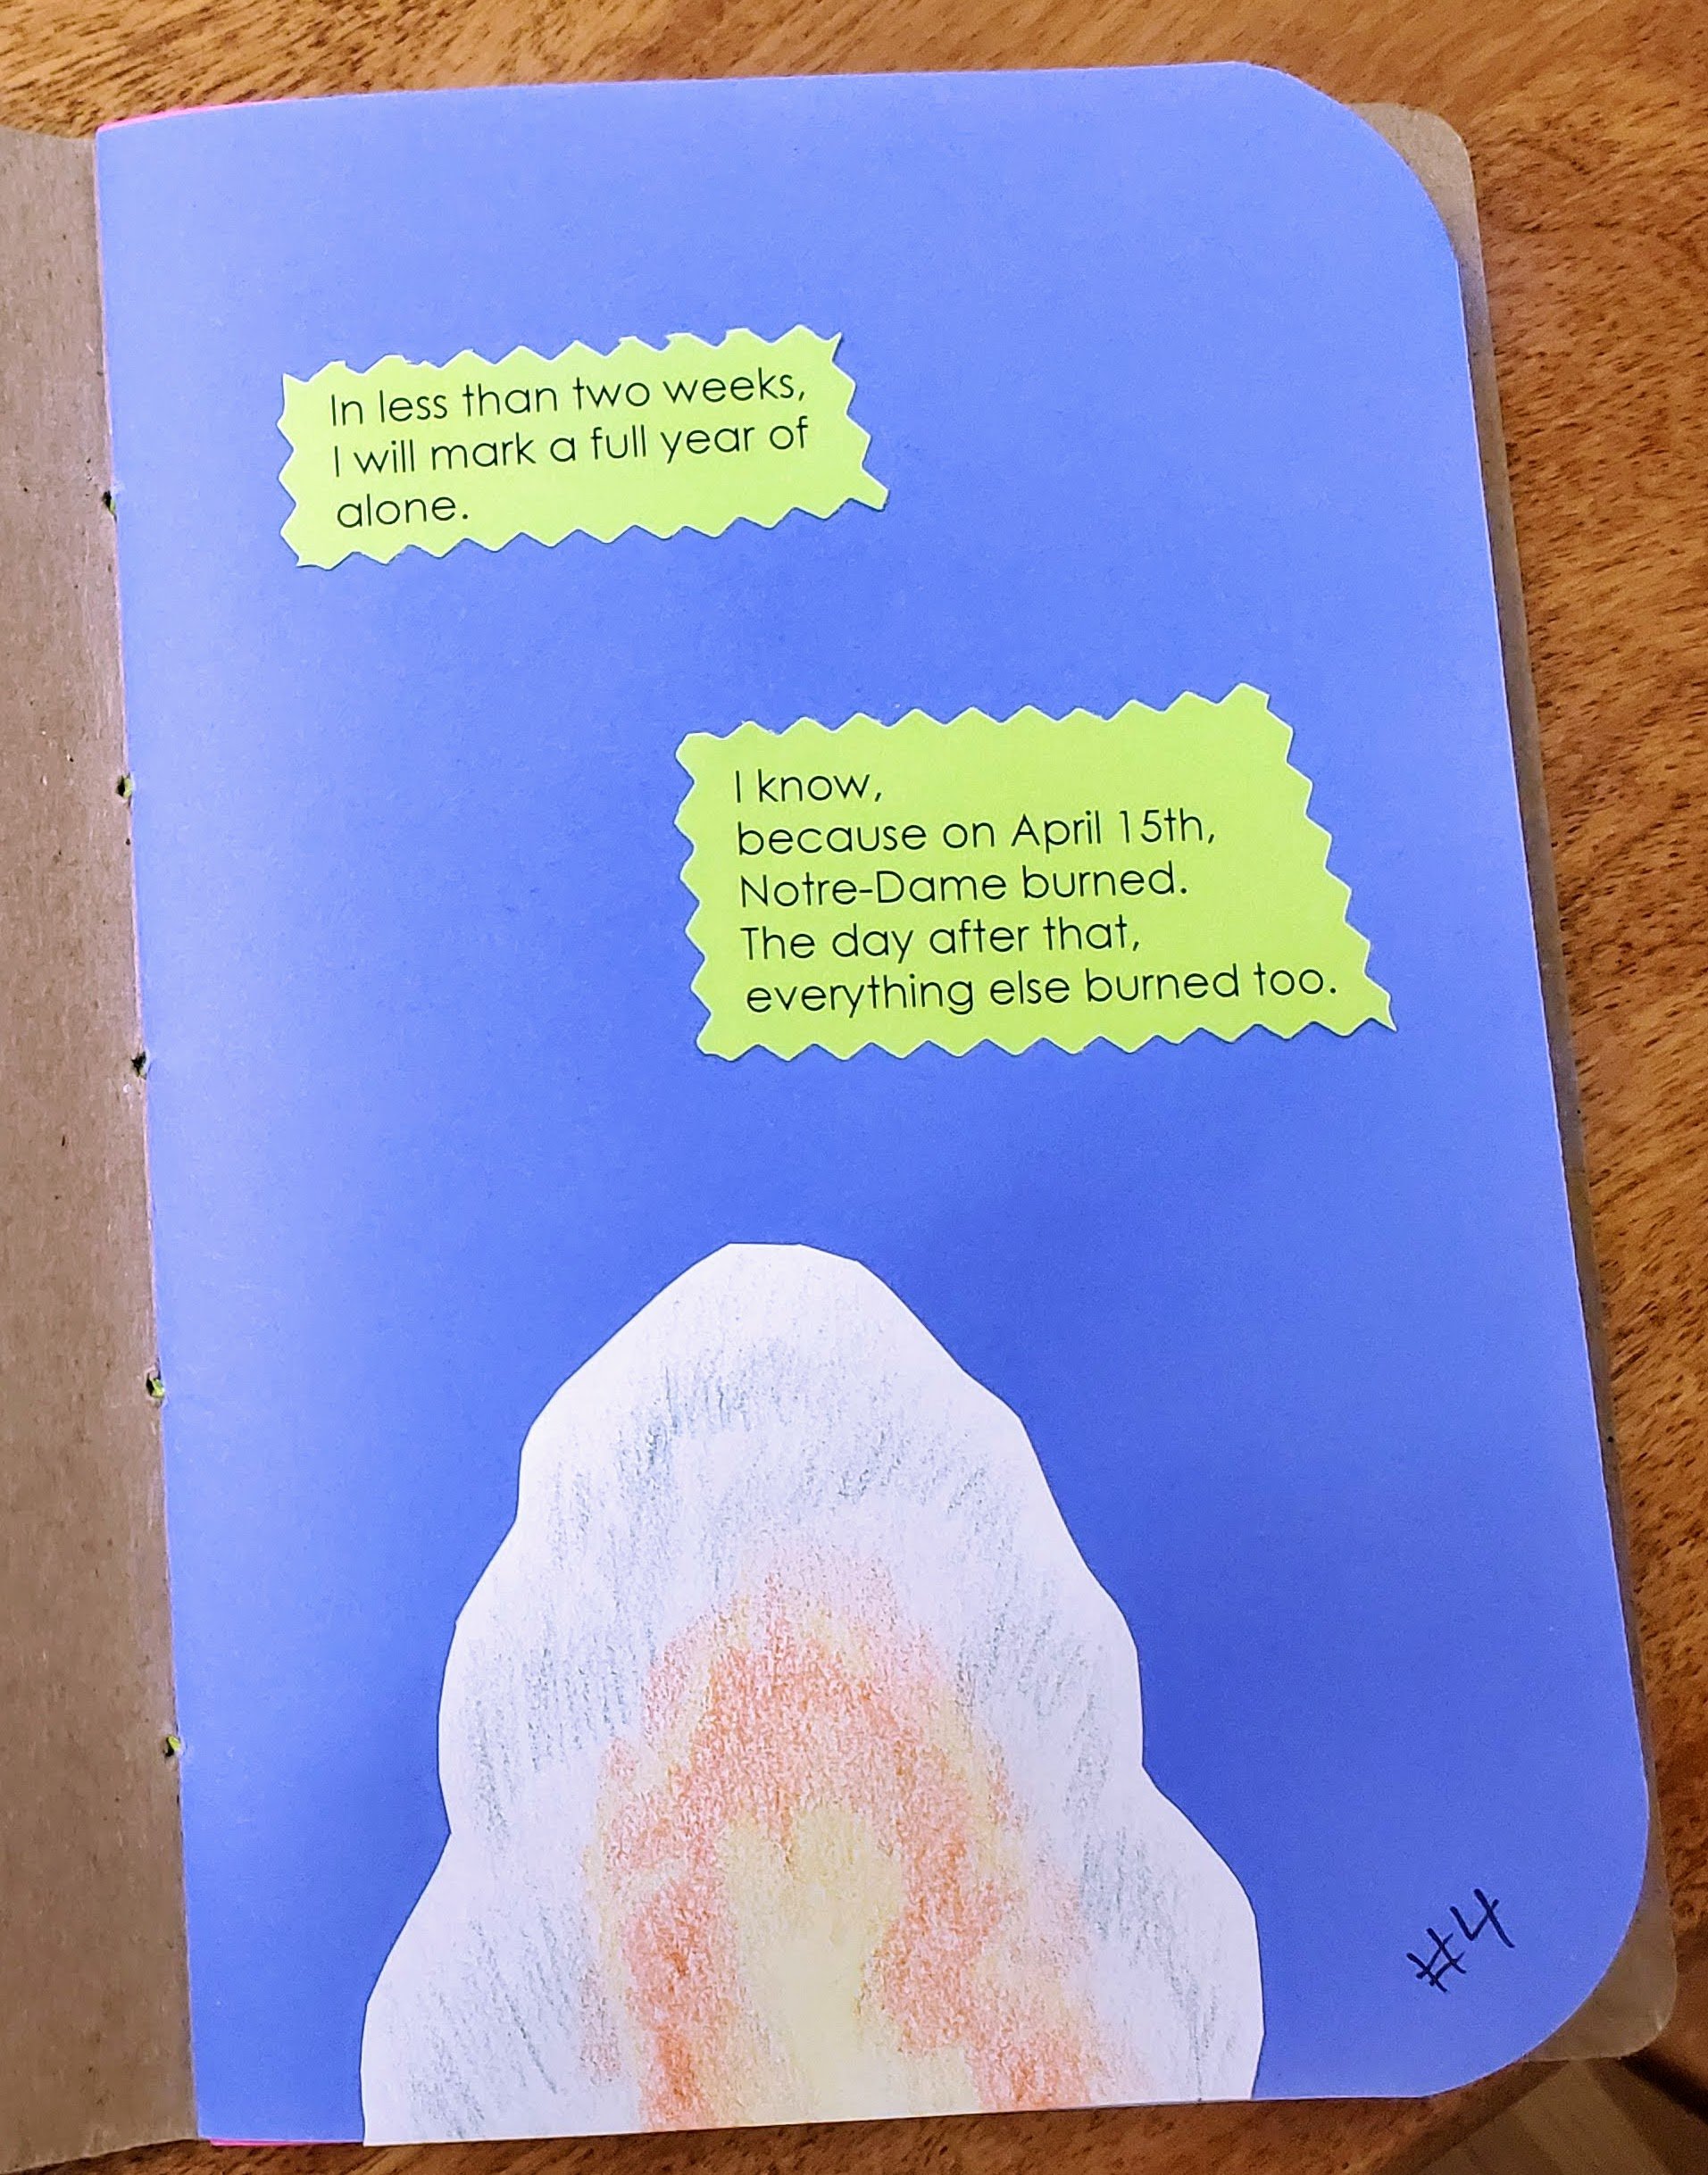 In less than two weeks,
I will mark a full year of
alone.
I know,
because on April 15th,
Notre-Dame burned.
The day after that,
everything else burned too.
#4